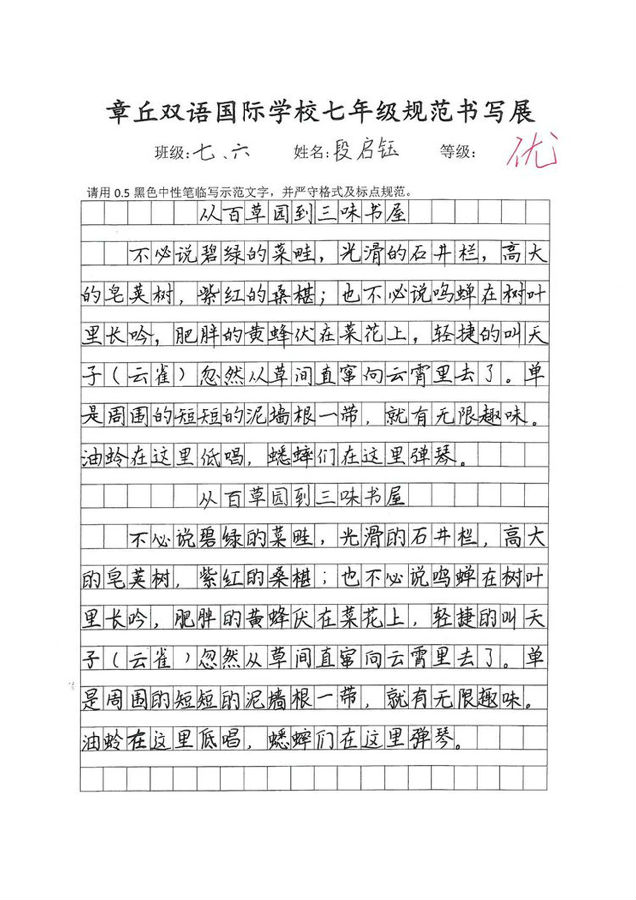 章丘双语国际学校七年级规范书写展
班级:七、六 姓名:段启钰 等级: 优
请用 0.5 黑色中性笔临写示范文字，并严守格式及标点规范。
从百草园到三味书屋
不必说碧绿的菜畦，光滑的石井栏，高大
的皂荚树，紫红的桑椹；也不必说鸣蝉在树叶
里长吟，肥胖的黄蜂伏在菜花上，轻捷的叫天
子（云雀）忽然从草间直窜向云霄里去了。单
是周围的短短的泥墙根一带，就有无限趣味。
油蛉在这里低唱，蟋蟀们在这里弹琴。
从百草园到三味书屋
不必说碧绿的菜畦，光滑的石井栏，高大
的皂荚树，紫红的桑椹；也不必说鸣蝉在树叶
里长吟，肥胖的黄蜂伏在菜花上，轻捷的叫天
子（云雀）忽然从草间直窜向云霄里去了。单
是周围的短短的泥墙根一带，就有无限趣味。
油蛉在这里低唱，蟋蟀们在这里弹琴。